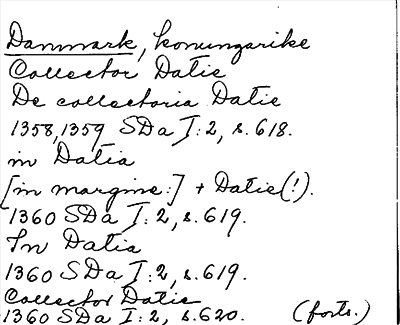 Danmark, konungarike
Collector Datie
De collectoria Datie
1358, 1359 SDa I:2, s. 618.
in Datia
[in margine:] + Datie(!).
1360 SDa I:2, s. 619.
In Datia
1360 SDa I:2, s. 619.
Collector Datie
1360 SDa I:2, s. 620. (forts.)